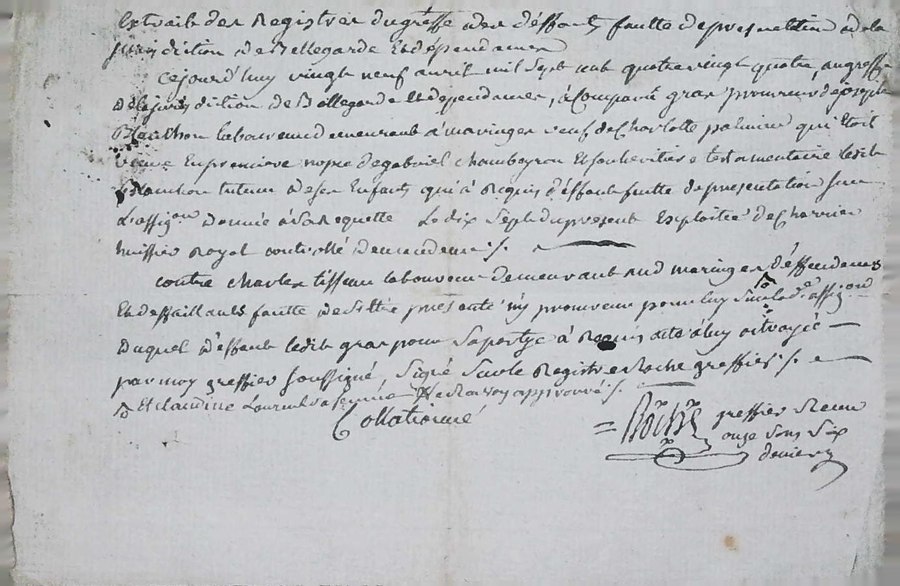 Extrait des Registres du greffe des deffauts fautte de presentation de la
Jurisdiction de Bellegarde et dependances
Cejourd'huy vingt neuf avril mil sept cent quatre vingt quatre, au greffe
de la jurisdiction de Bellegarde et dependances, à comparu gras procureur de joseph
Planchon laboureur demeurant à maringes veuf de Charlotte palmier qui etoit
veuve en premiere nopce de gabriel Chambeyron et son heritiere testamentaire ledit
Planchon tuteur de ses Enfants qui à Requis deffaut faute de presentation sur
L'assig.on donnée à sa Requette Le dix sept du present Exploitée de Charvin
huissier Royal controllé /.
contre Charles tisseur laboureur demeurant aud maringes deffendeurs
Et deffaillants fautte de s'etre presenté ny procureur pour luy sur lad.e assig.on
Duquel deffaut ledit gras pour sa partye à Requis acte à luy octroyé
par moy greffier soussigné, Signé sur le Registre Roche greffier /.
Et claudine sa femme Renvoy approuvé /.
Collationné
= Roche greffier Receu
onze sous six
deniers